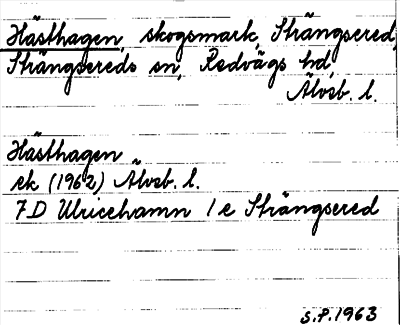 Hästhagen, skogsmark, Strängsered,
Strängsereds sn, Redvägs hd,
Älvsb. l.
Hästhagen
ek (1962) Älvsb. l.
7D Ulricehamn 1e Strängsered
S.P.1963